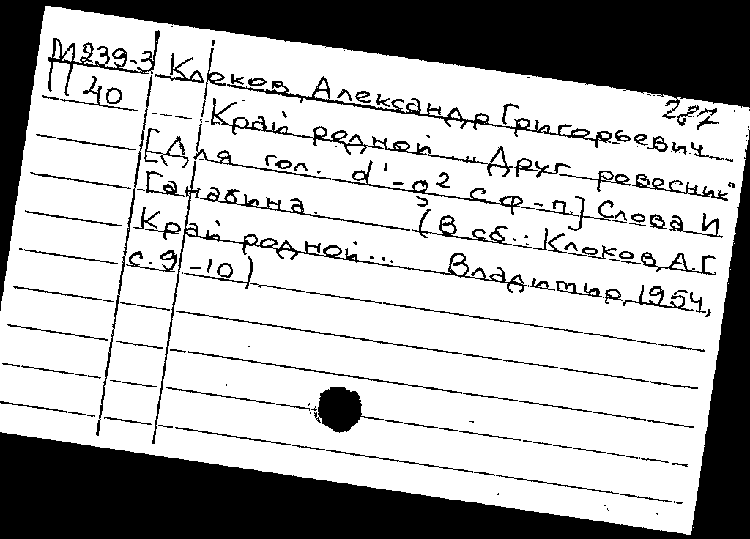 287
М239-3 Клоков, Александр Григорьевич
П 40 Край родной „Друг ровесник"
[Для гол. d¹-g² с ф-п] Слова И
Ганабина. (В сб.: Клоков, А.Г
Край родной... Владимир, 1954,
с. 9-10)